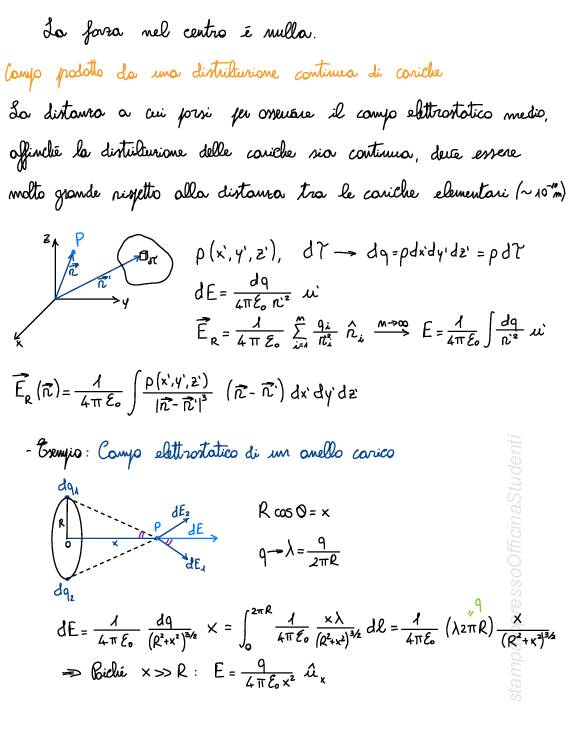 La forza nel centro è nulla.
Campo prodotto da una distribuzione continua di cariche
La distanza a cui porsi per osservare il campo elettrostatico medio,
affinché la distribuzione delle cariche sia continua, deve essere
molto grande rispetto alla distanza tra le cariche elementari (~10⁻¹⁰ m)
z P r⃗ r⃗' dτ y x
ρ(x',y',z'), dτ → dq = ρdx'dy'dz' = ρ dτ
dE = dq / 4πε₀ r'² u'
E⃗_R = 1/4πε₀ Σ_{i=1}^{n} q_i/r_i² r̂_i —n→∞→ E = 1/4πε₀ ∫ dq/r'² u'
E⃗_R (r⃗) = 1/4πε₀ ∫ ρ(x',y',z')/|r⃗ - r⃗'|³ (r⃗ - r⃗') dx'dy'dz'
- Esempio: Campo elettrostatico di un anello carico
dq₁ R O x P dE₂ dE dE₁ dq₂
R cosθ = x
q → λ = q/2πR
dE = 1/4πε₀ dq/(R²+x²)^{3/2} x = ∫₀^{2πR} 1/4πε₀ xλ/(R²+x²)^{3/2} dl = 1/4πε₀ (λ2πR) x/(R²+x²)^{3/2}
" q
⇒ Poiché x >> R : E = q/4πε₀x² û_x
OfficinaStudenti